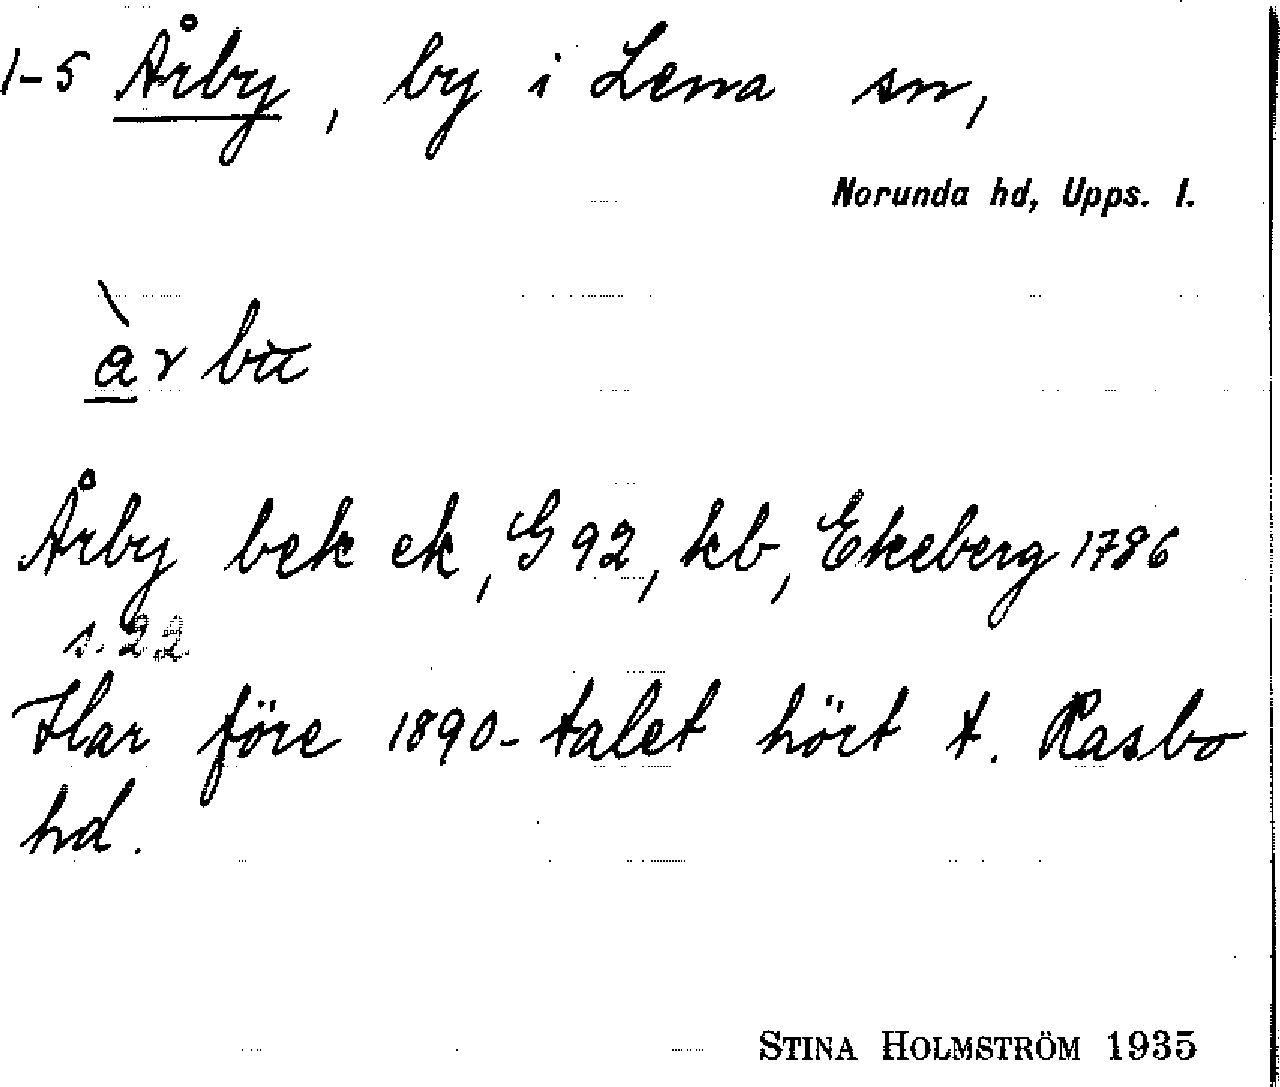 1-5 Årby, by i Lena sn,
Norunda hd, Upps. l.
Årby bek ek, G 92, kb, Ekeberg 1786
s. 22
Har före 1890-talet hört t. Rasbo
hd.
STINA HOLMSTRÖM 1935